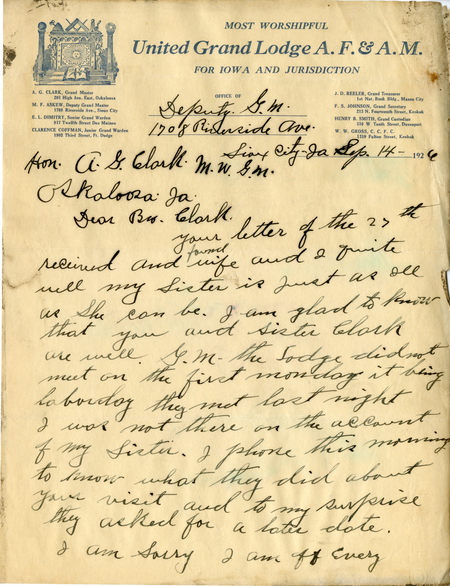 MOST WORSHIPFUL
United Grand Lodge A. F. & A. M.
FOR IOWA AND JURISDICTION
A. G. CLARK, Grand Master
M. F. ASKEW, Deputy Grand Master
1708 Riverside Ave., Sioux City
E. L. DIMITRY, Junior Grand Warden
817 Twelfth Street Des Moines
CLARENCE COFFMAN, Junior Grand Warden
1502 Third Street, Ft. Dodge
J. D. REELER, Grand Treasurer
1st Nat. Bank Bldg., Mason City
F. S. JOHNSON, Grand Secretary
213 N. Fourteenth Street, Keokuk
HENRY B. SMITH, Grand Custodian
W. W. GROSS, C. C. F. C.
1718 Fulton Street, Keokuk
OFFICE OF
Deputy G. M.
1708 Riverside Ave.
Sioux City Ia Sep. 14 - 1926
Hon. A. G. Clark. M. W. G. M.
Oskaloosa Ia.
Dear Bro. Clark.
your letter of the 27th
received and found wife and I quite
well my Sister is Just as Ill
as She can be. I am glad to know
that you and Sister Clark
are well. G.M. the Lodge did not
meet on the first monday it being
laborday they met last night
I was not there on the account
of my Sister. I phone this morning
to know what they did about
your visit and to my surprise
they asked for a later date.
I am Sorry I am off Every